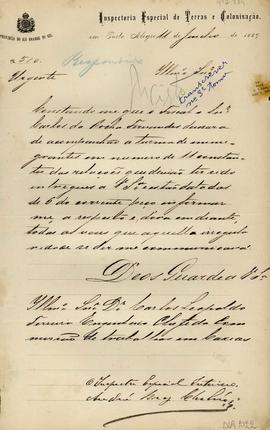 Inspectoria Especial de Terras e Colonisação.
PROVINCIA DO RIO GRANDE DO SUL
em Porto Alegre 11 de de 188
Nº 510
Urgente
Respondido
Illmo Snr
transcrever
Constando-me que o fiscal
Carlos da Rocha Fernandes deixara
de acompanhar a turma de immi-
grantes em numero de 11 constan-
tes das relações que deviam ter sido
entregues a Vª Sª datadas
de 6 do corrente, informar
me a respeito e d'ora em diante,
todas as vezes que aquella irregula
ridade se der me communicará
Deos Guarde a Vª Sª
Illmo Snr Dr Carlos Leopoldo
Engenheiro Chefe da Com
missão de trabalhos em Caxias
O Inspector Especial Interino,